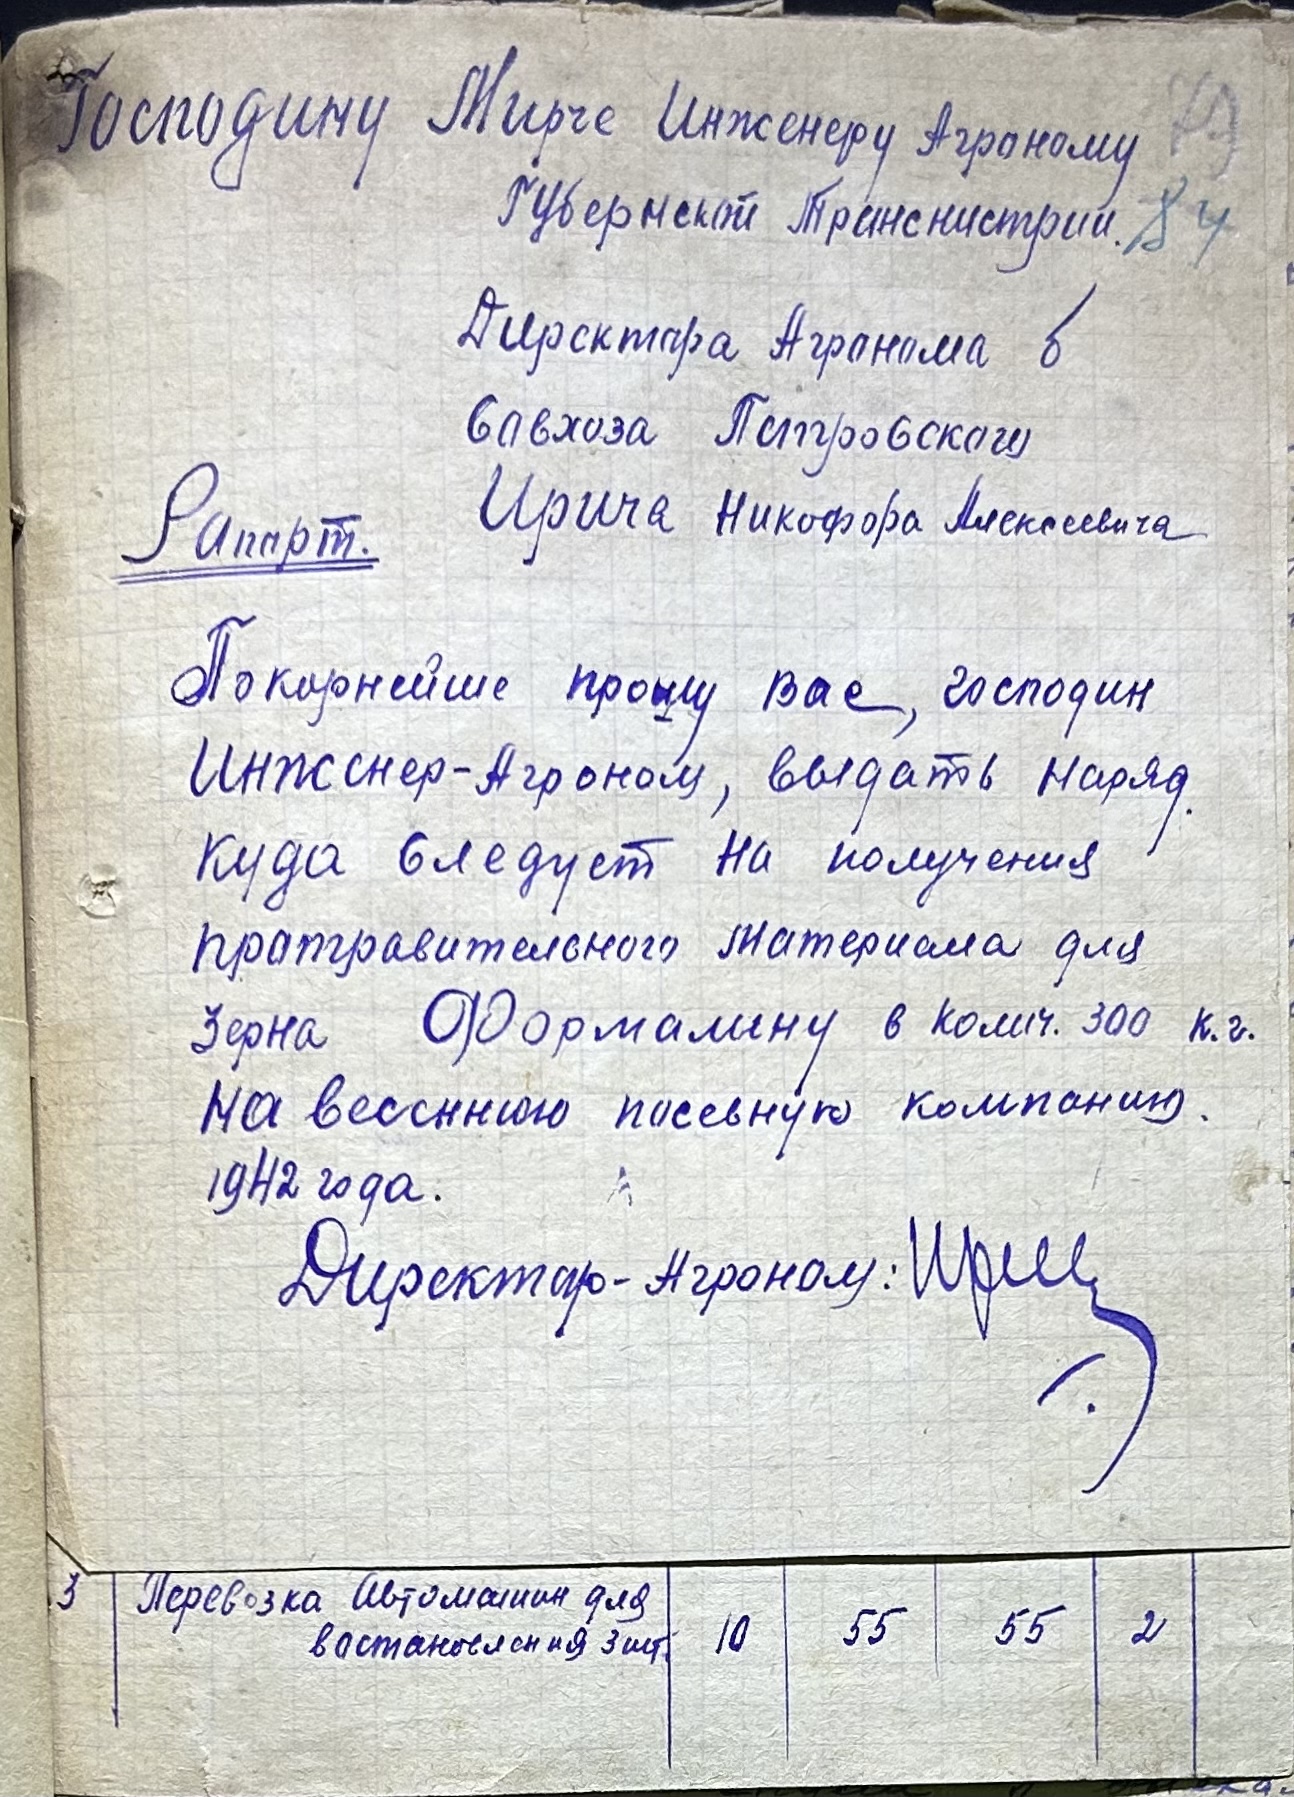 Господину Мирче Инженеру Агроному
Губернской Транснистрии. 84
Директора Агронома
совхоза Петровского
Ирича Никофора Алексеевича
Рапорт.
Покорнейше прошу Вас, господин
Инженер-Агроном, выдать наряд
куда следует на получения
протравительного материала для
зерна Формалину в колич. 300 к.г.
на весеннюю посевную компанию.
1942 года.
Директор-Агроном: Ирич
3 Перевозка Автомашин для
востановления 3 шт. 10 55 55 2